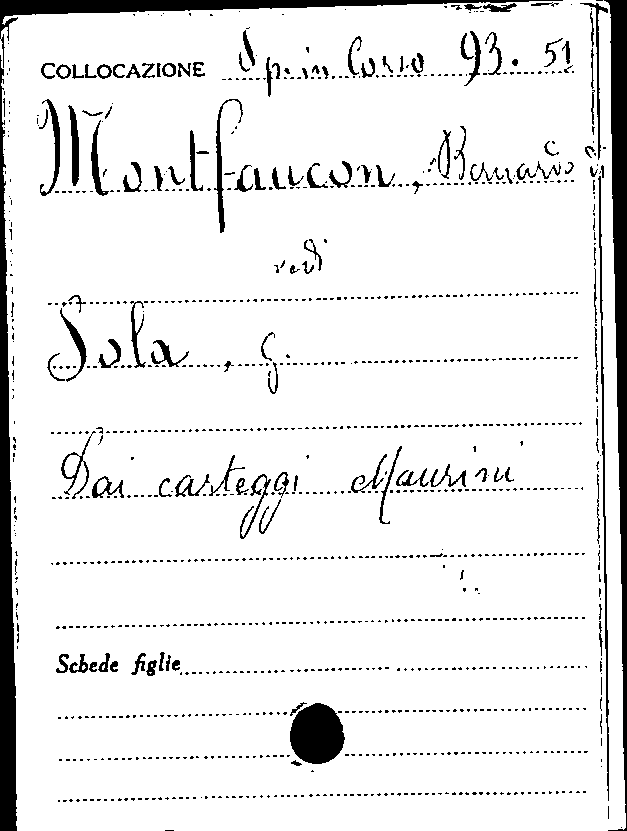 COLLOCAZIONE Sp. in Corso 93. 51
Montfaucon, Bernardo
vedi
Sola, G.
Dai carteggi Maurini
Schede figlie